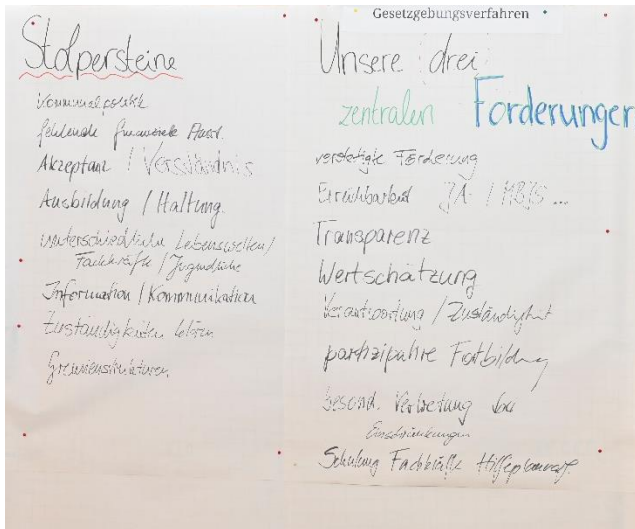 Gesetzgebungsverfahren
Stolpersteine
Kommunalpolitik
fehlende finanzielle Ausst.
Akzeptanz / Verständnis
Ausbildung / Haltung
unterschiedliche Lebenswelten /
Fachkräfte / Jugendliche
Information / Kommunikation
Zuständigkeiten klären
Gremienstrukturen
Unsere drei
zentralen Forderungen
verstetigte Förderung
Erreichbarkeit JA / MBJS ...
Transparenz
Wertschätzung
Verantwortung / Zuständigkeit
partizipative Fortbildung
besond. Vertretung
Einschränkungen
Schulung Fachkräfte